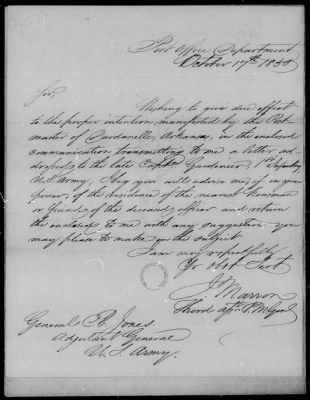 Post Office Department
October 17th 1850
Sir,
Wishing to give due effect
to the proper intention manifested by the Post
master of Dardanelle, Arkansas, in the enclosed
communication transmitting to me a letter ad-
dressed to the late Capt Gardenier, 1st Infantry
U.S. Army, I beg you will advise me, if in your
power, of the residence of the nearest kinsman
or friend of the deceased officer and return
the enclosures to me with any suggestion you
may please to make on the subject.
I am very respectfully
Yr obt Servt
J Marron
Third Asst P. M. Genl
General R. Jones,
Adjutant General
U. S. Army.